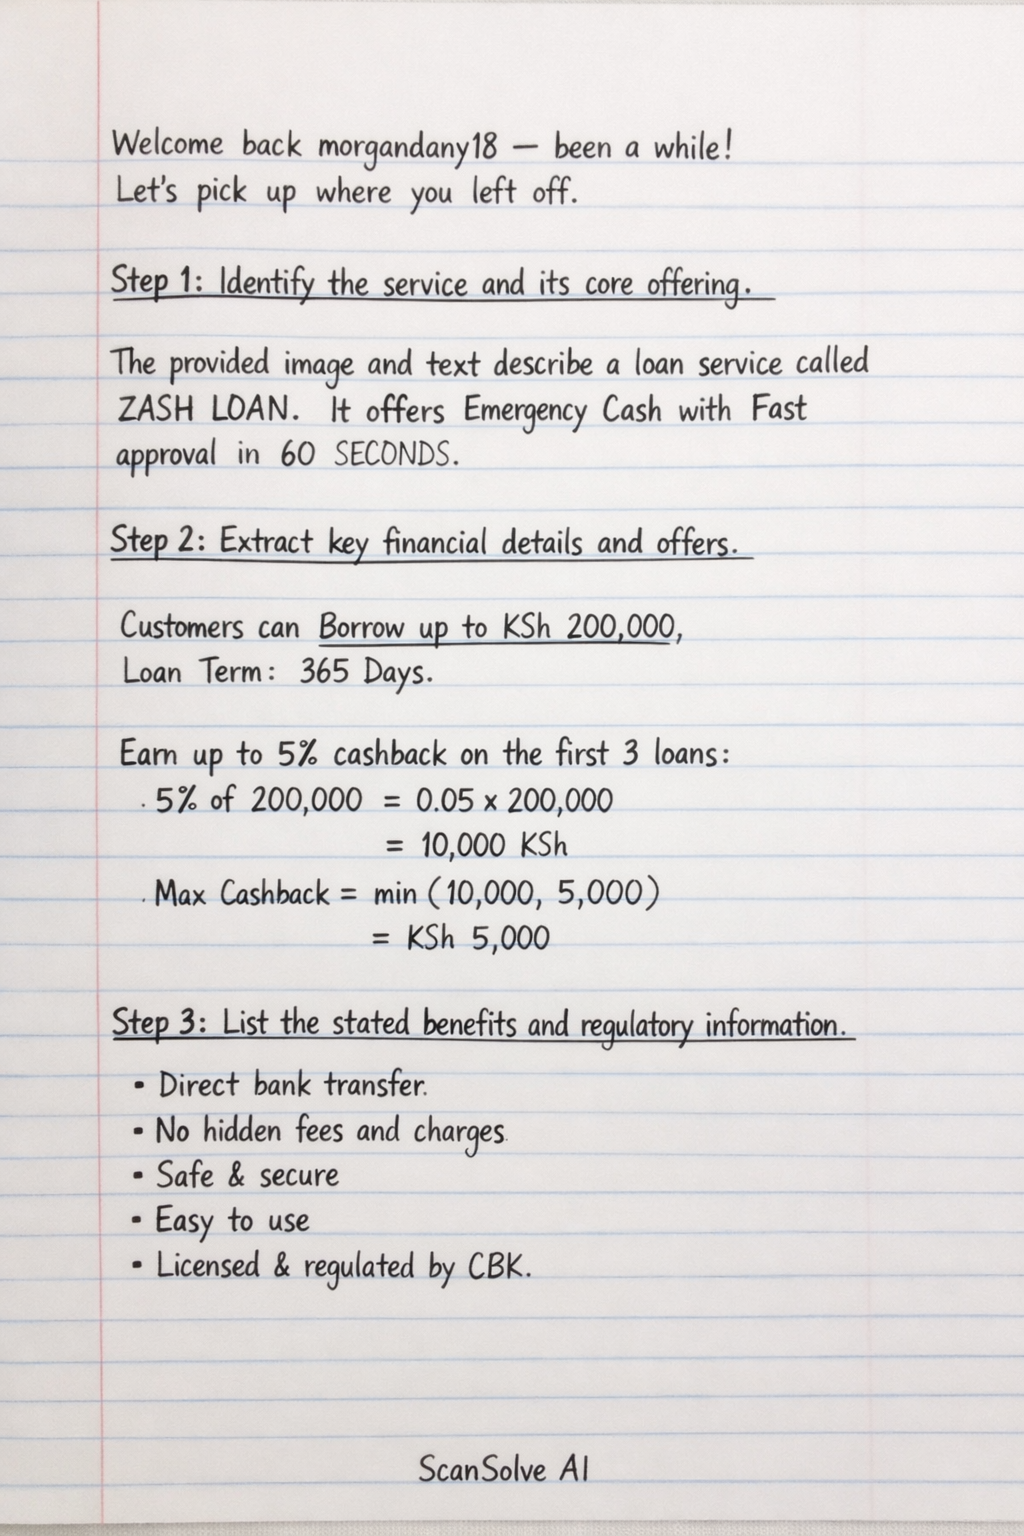 Welcome back morgandany18 — been a while!
Let's pick up where you left off.
Step 1: Identify the service and its core offering.
The provided image and text describe a loan service called
ZASH LOAN. It offers Emergency Cash with Fast
approval in 60 SECONDS.
Step 2: Extract key financial details and offers.
Customers can Borrow up to KSh 200,000,
Loan Term: 365 Days.
Earn up to 5% cashback on the first 3 loans:
· 5% of 200,000 = 0.05 x 200,000
= 10,000 KSh
· Max Cashback = min (10,000, 5,000)
= KSh 5,000
Step 3: List the stated benefits and regulatory information.
- Direct bank transfer.
- No hidden fees and charges.
- Safe & secure
- Easy to use
- Licensed & regulated by CBK.
ScanSolve AI